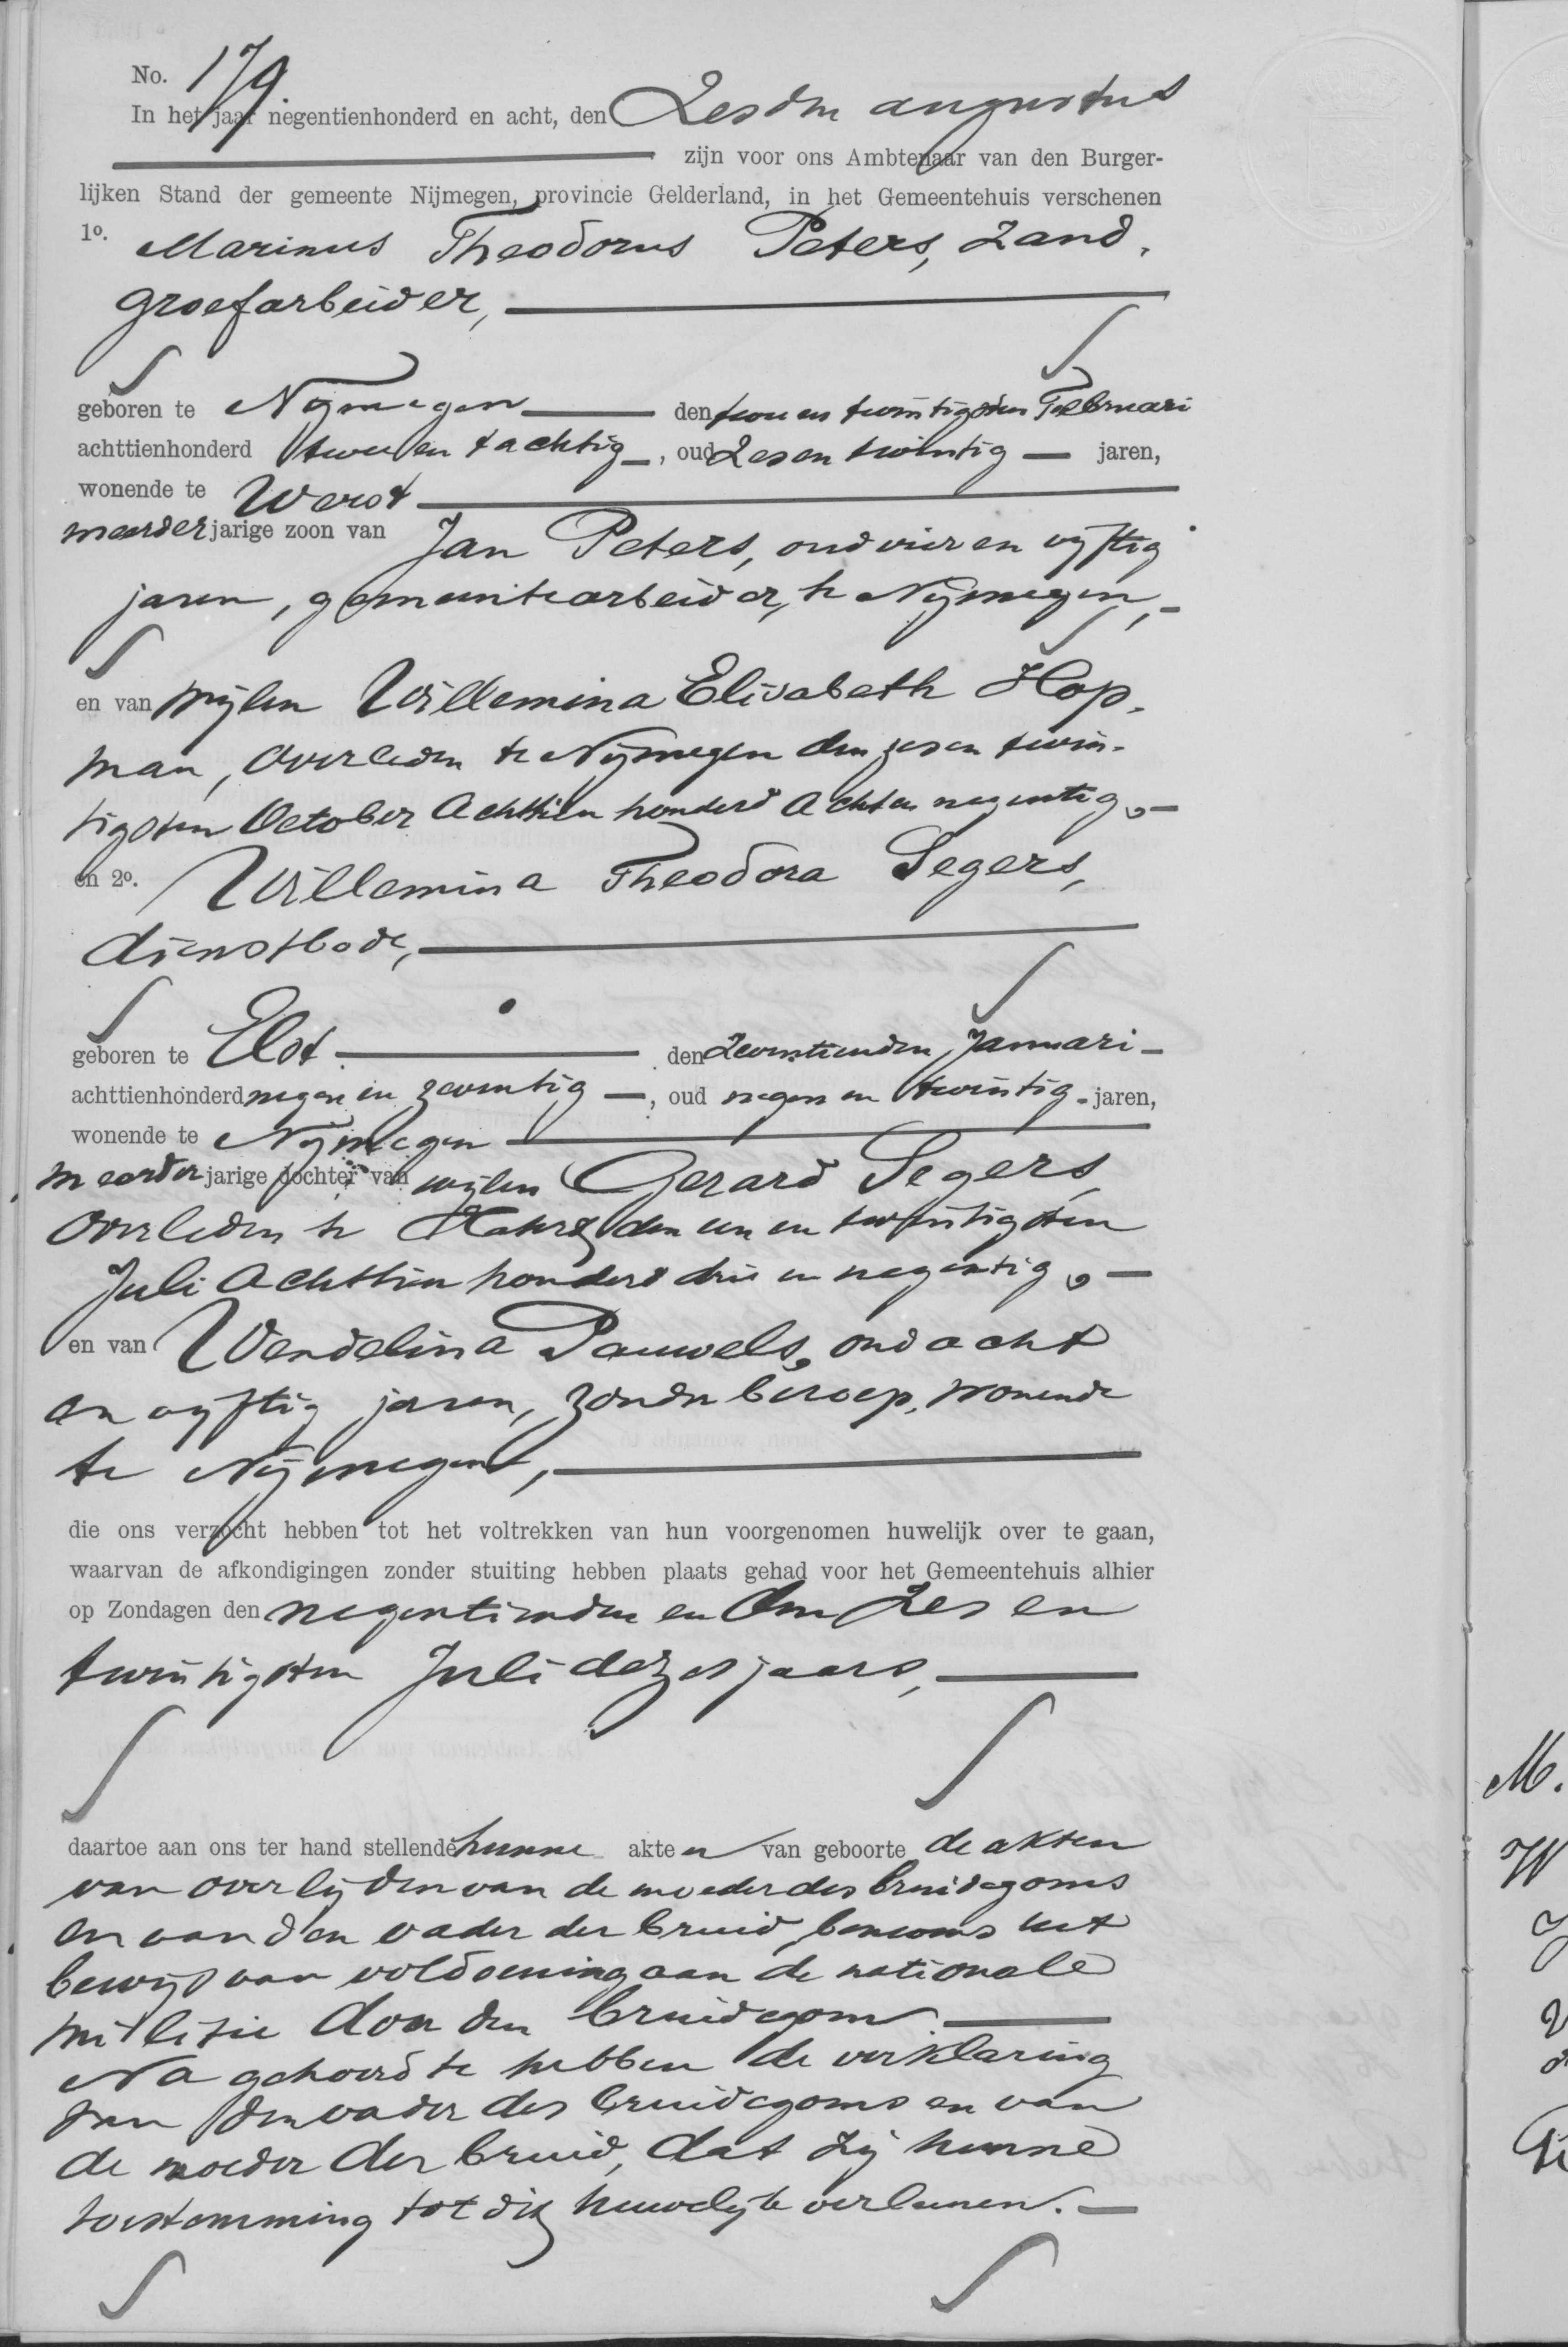 No. 179.
In het jaar negentienhonderd en acht, den Zesden augustus
zijn voor ons Ambtenaar van den Burger-
lijken Stand der gemeente Nijmegen, provincie Gelderland, in het Gemeentehuis verschenen
1o. Marinus Theodorus Peters, Zand-
groefarbeider,
geboren te Nijmegen den twee en twintigsten Februari
achttienhonderd twee en tachtig, oud Zes en twintig jaren,
wonende te
meerder jarige zoon van Jan Peters, oud vier en vijftig
jaren, gemeentearbeider, te Nijmegen,
en van wijlen Willemina Elisabeth Hop-
man, overleden te Nijmegen den zes en twin-
tigsten October Achttien honderd Acht en negentig,
en 2o. Willemina Theodora Segers,
dienstbode,
geboren te Elst den Zeventienden Januari
achttienhonderd negen en zeventig, oud negen en twintig jaren,
wonende te Nijmegen
meerder jarige dochter van wijlen Gerard Segers,
overleden te den een en twintigsten
Juli Achttien honderd drie en negentig,
en van Wendelina Pauwels, oud acht
en vijftig jaren, zonder beroep, wonende
te Nijmegen,
die ons verzocht hebben tot het voltrekken van hun voorgenomen huwelijk over te gaan,
waarvan de afkondigingen zonder stuiting hebben plaats gehad voor het Gemeentehuis alhier
op Zondagen den negentienden en den Zes en
twintigsten Juli dezes jaars,
daartoe aan ons ter hand stellende hunne akten van geboorte de akten
van overlijden van de moeder des bruidegoms
en van den vader der bruid, benevens het
bewijs van voldoening aan de nationale
militie door den bruidegom.
Na gehoord te hebben de verklaring
van den vader des bruidegoms en van
de moeder der bruid, dat zij hunne
toestemming tot dit huwelijk verleenen.
M.
W